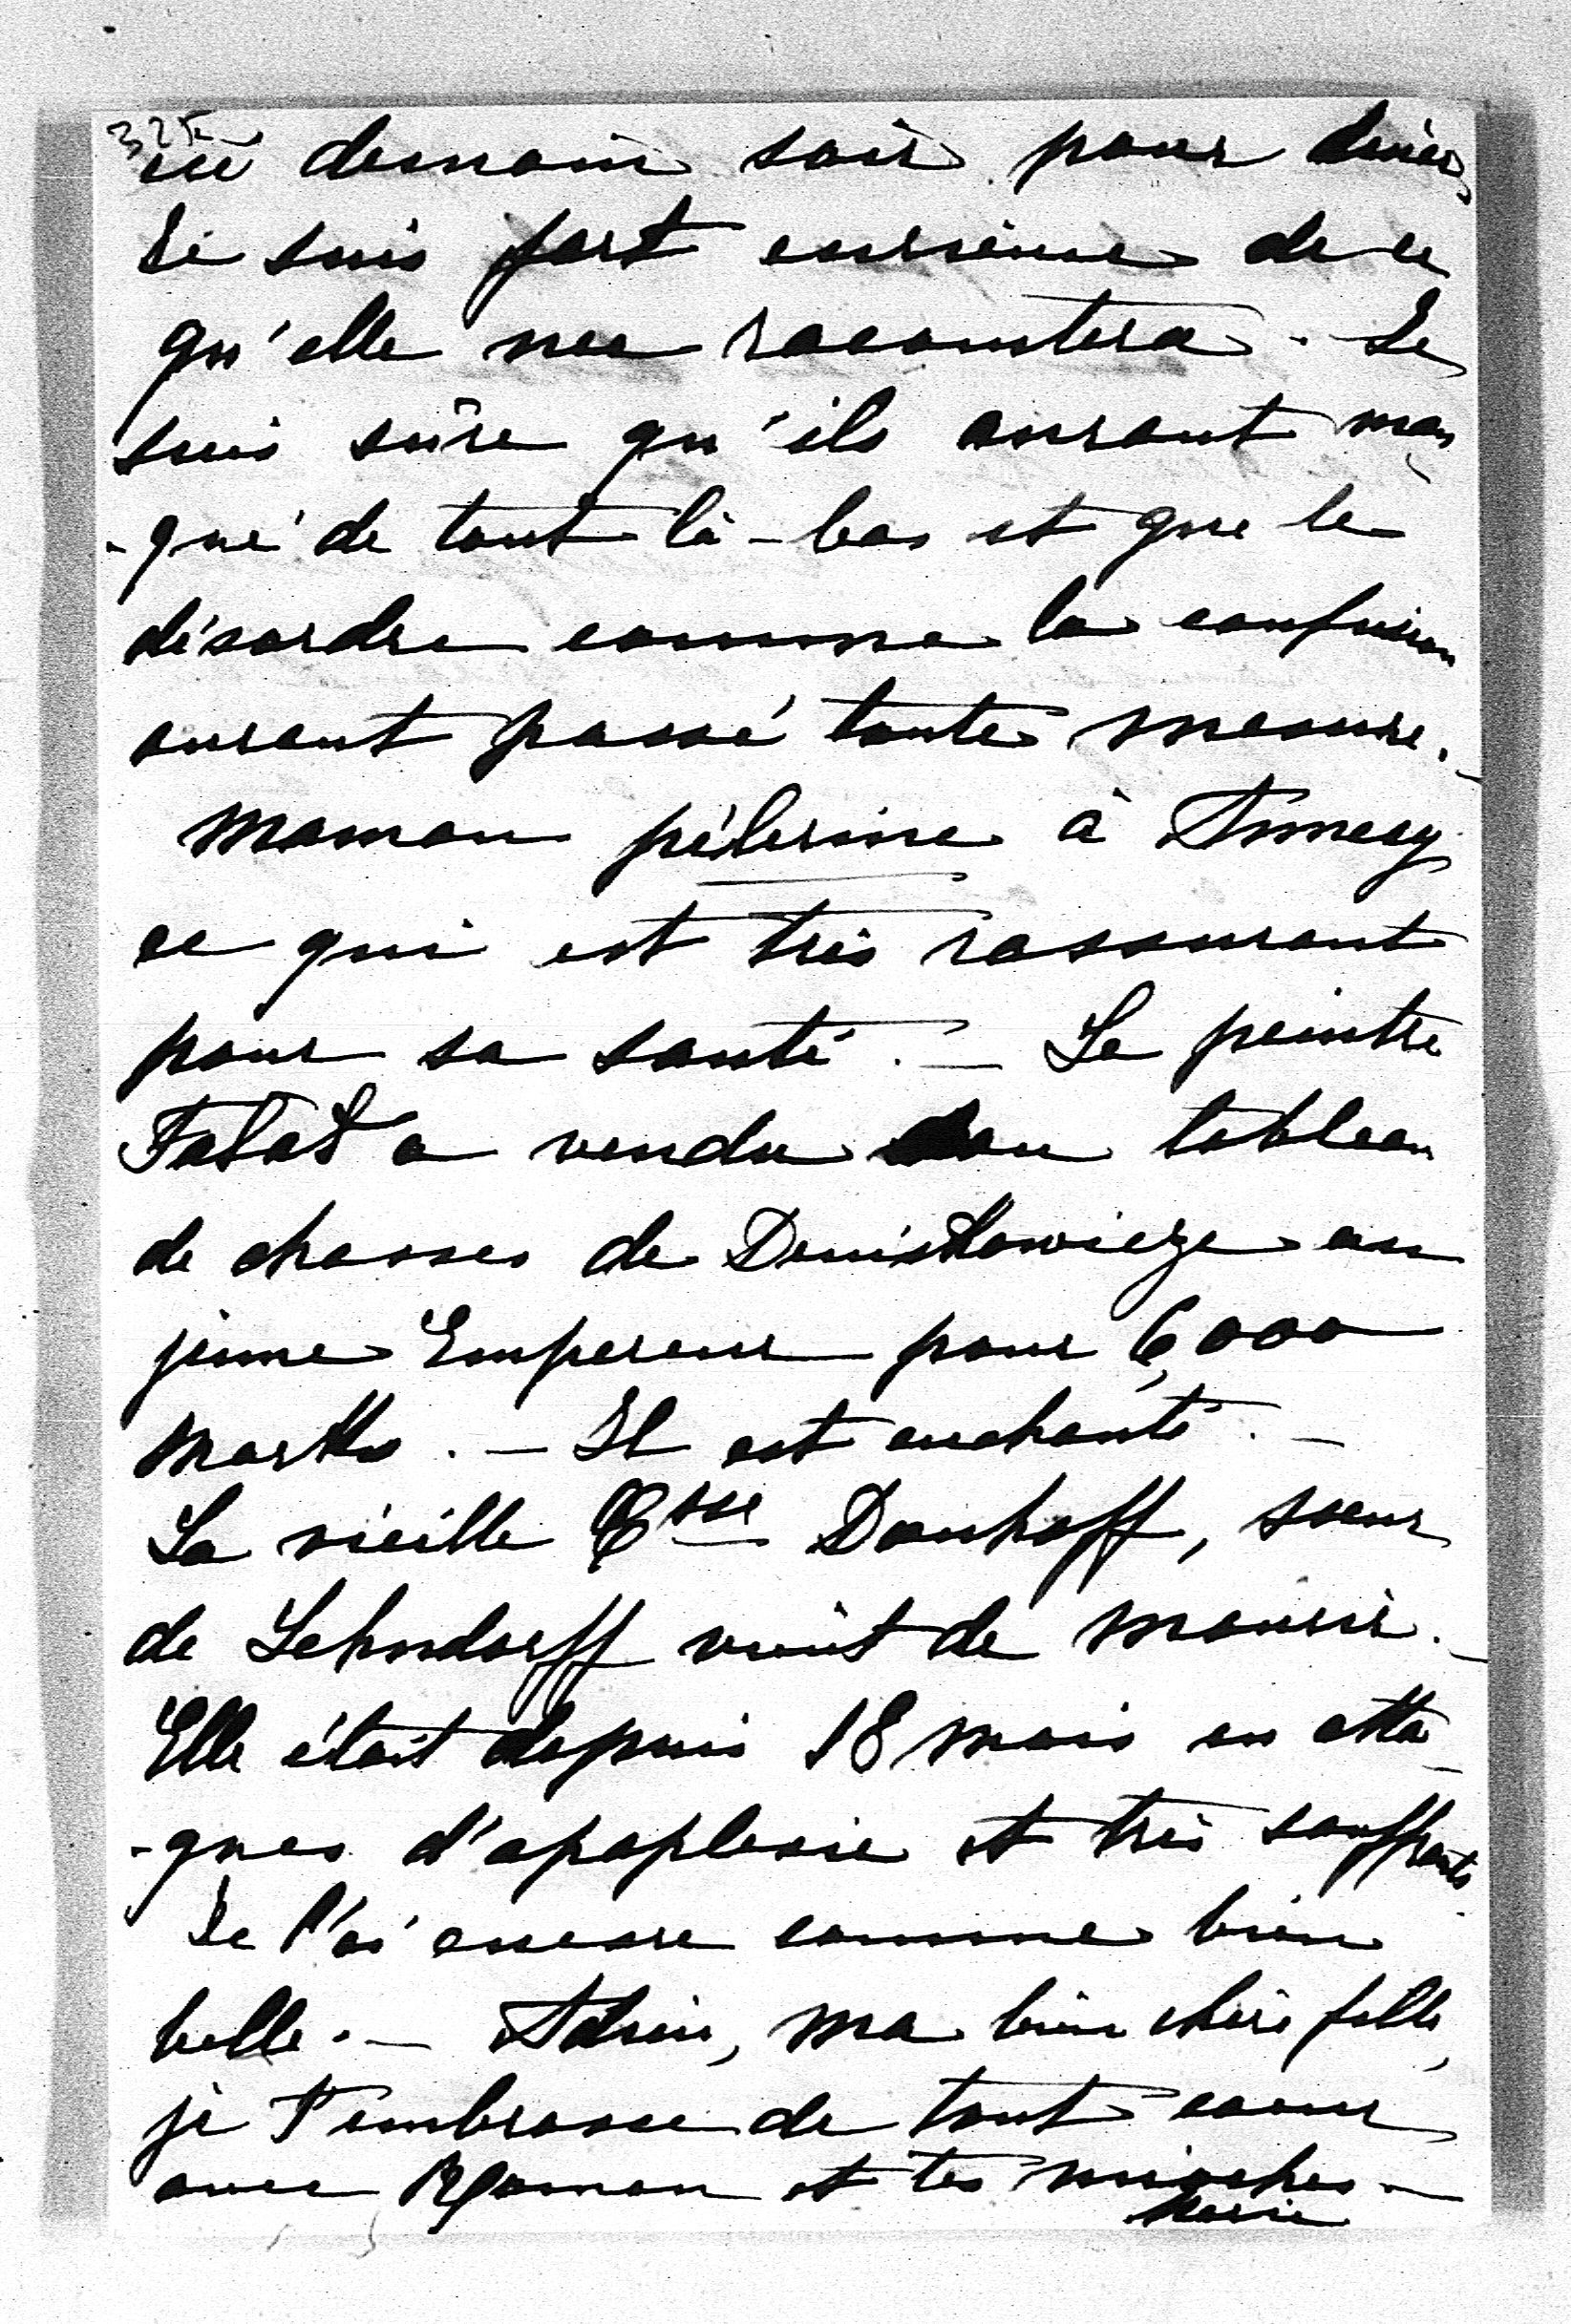 325
ici demain soir pour diner,
Je suis fort curieuse de ce
qu'elle me racontera. Je
suis sûre qu'ils auront man
-qué de tout là-bas et que le
désordre comme la confusion
auront passé toute mesure. -
Maman pélerine à Annecy
ce qui est très rassurant
pour sa santé. - Le peintre
Falat a vendu son tableau
de chasses de au
jeune Empereur pour 6,000
marks. - Il est enchanté. -
La vieille Csse Donhoff, soeur
de Lehndorff vient de mourir. -
Elle était depuis 18 mois en atta-
-ques d'apoplexie et très souffrante
Je l'ai encore connue bien
belle. - Adieu, ma bien chère fille,
je t'embrasse de tout coeur
avec Roman et tes mioches. -
Marie